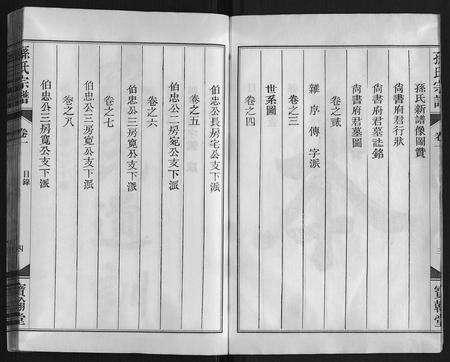 孫氏宗譜
卷一
寶翰堂
孫氏新譜像圖贊
尙書府君行狀
尙書府君墓誌銘
尙書府君墓圖
卷之貳
雜序傳字派
卷之三
世系圖
卷之四
伯忠公長房宅公支下派
卷之五
伯忠公二房宛公支下派
卷之六
伯忠公三房寬公支下派
卷之七
伯忠公三房寬公支下派
卷之八
伯忠公三房寬公支下派
孫氏宗譜
卷一
目錄
四
寶翰堂